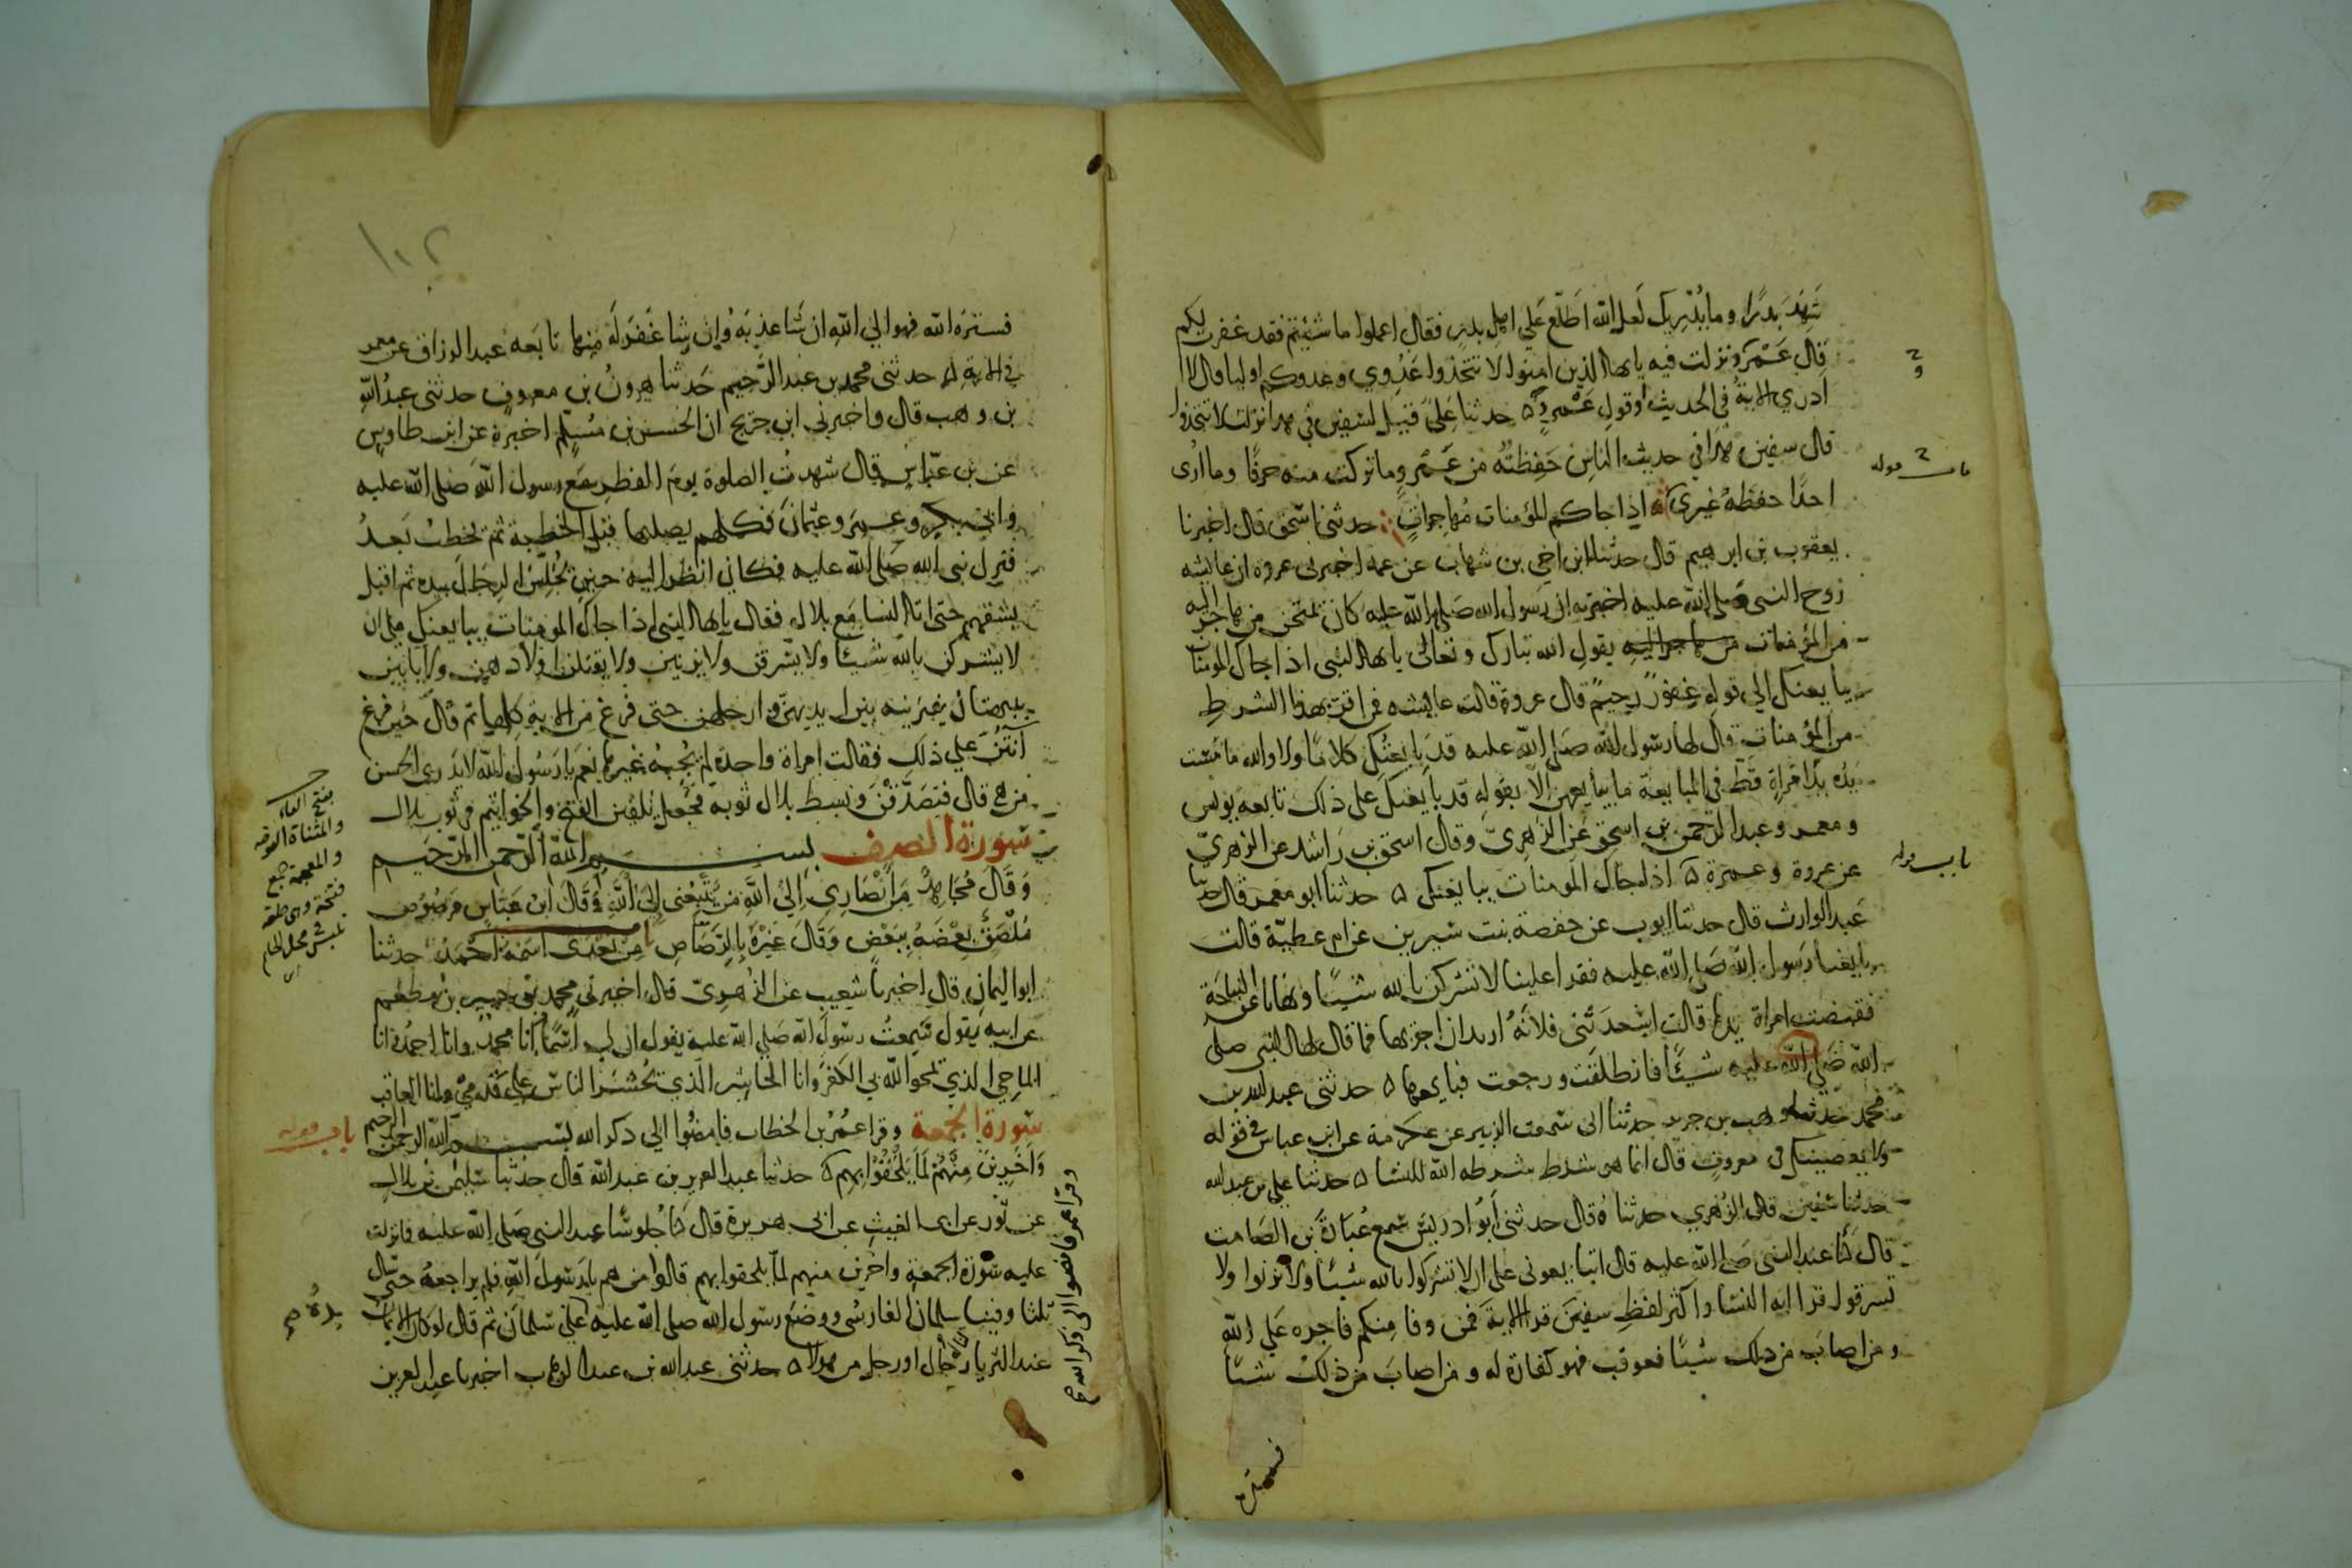 شَهِدَ بَدرًا وما يُدْرِيك لَعل الله اَطّلَع عَلي اهل بدرٍ فقال اعملوا ما شيتم فقد غفرت لكم
قال عَمْرو ونزلت فيه يايها الذين امنوا لا تتخذوا عَدُوي وعدوكم اوليا قال لا
ادري الاية في الحديث اوقول عَمْرٍو حدثنا عَليّ قيل لسفين في هذا نزلت لا تتخذوا
قال سفين هذا في حديث الناس حَفِظتُه من عَمْرٍو وما تركت منه حرفًا وما أُرى
احدًا حفظه غيري اذا جاكم المؤمنات مُهاجراتٍ حدثنا اسحق قال اخبرنا
يعقوب بن ابرهيم قال حدثنا ابن اخي بن شهاب عن عمه اخبرني عروة ان عايشه
زوج النبي صلى الله عليه اخبرته ان رَسول الله صَلى الله عليه كان يمتحن من هاجر اليه
من المؤمنات من هاجر اليه بقول الله تبارك وتعالى يايها النبي اذا جاك المومنات
يبايعنك الي قوله غفورٌ رحيمٌ قال عروة قالت عايشه فمن اقر بهذا الشرط
من المؤمنات قال لها رسول الله صَلى الله عليه قد بايعتُكِ كلامًا ولا والله ما مَسّت
يدُه يدَ امراةٍ قَطّ في المبايعة ما يبايعهن الا بقوله قد بايعتكِ على ذلك تابعه يونس
ومعمر وعبد الرّحمن بن اسحق عَن الزّهريّ وقال اسحق بن رَاشد عن الزهريّ
عن عروة وعمرة اذا جاك المومنات يبايعنك حدثنا ابو معمر قال حدثنا
عَبد الوارث قال حدثنا ايوب عن حفصة بنت سيرين عن ام عطيّة قالت
بايعنا رَسول الله صَلى الله عليه فقرا علينا لا تشركن بالله شيئًا ونهانا عن النياحَة
فقبضت امراة يدها قالت اسعدَتْني فلانةُ اريد ان اجزيها فما قال لها النبي صلى
الله صَلى الله عليه شيئًا فانطلقَت ورجعت فبايعها حدثنى عبد الله بن
محمد حدثنا وهب بن جرير حدثنا ابي سَمعت الزبير عن عكرمة عن ابن عباس في قوله
ولا يعصينك في معروفٍ قال انما هو شرط شرطه الله للنسَا حدثنا علي بن عبد الله
حدثنا سُفين قال الزّهري حدثناهُ قال حدثني أبُو ادريسَ سَمع عُبادةَ بن الصَامت
قال كُنا عند النبي صَلى الله عليه قال اتبايعوني على ان لا تشركوا بالله شيئًا ولا تزنوا ولا
تسرقوا وقرا اية النسا واكثر لفظِ سفينَ قرا الايةَ فمن وفا منكم فاجره عَلي الله
ومن اصابَ من ذلك شيئًا فعوقب فهو كفارة له ومن اصابَ مِن ذلكَ شيئًا
فستره
باب قوله
باب قوله
١٠٢
فسترَه الله فهو الي الله ان شَا عذبَه وإن شا غَفَر لَه مِنها تابعه عبد الرزاق عن معمر
في الاية حدثني محمد بن عبد الرّحيم حَدثنا هرونُ بن معروفٍ حدثني عبدُ الله
بن وهب قال واخبرني ابن جريج ان الحسن بن مُسلم اخبرهُ عن ابن طاوسٍ
عن بن عبّاسٍ قال شهدتُ الصلوة يومَ الفطر مع رسول الله صَلى الله عليه
وابي بكرٍ وعمرَ وعثمانَ فكلهم يصليها قبل الخطبة ثم يخطبُ بَعدُ
فنزل نبي الله صَلى الله عليه فكاني انظر اليه حينَ يُجلِّسُ الرجَالَ بيده ثم اقبل
يشقهم حتى اتا النسا مَع بلالٍ فقال يايها النبي اذا جاك المومنات يبايعنك على ان
لا يشركن بالله شيئًا ولا يسرقن ولا يزنين ولا يقتلن اولادهن ولا ياتين
ببهتان يفترينه بين ايديهنّ وارجلهن حتى فرغ من الاية كلها ثم قال حين فرغ
أنتُنّ علي ذلك فقالت امراة واحدة لم يُجِبْهُ غيرها نعم يا رَسُول الله لا يدري الحسن
من هي قال فتصَدَّقْنَ وبسط بلال ثوبه فجَعلنَ يُلقين الفتخ والخواتيم في ثوب بلال
سورة الصف بسم الله الرّحمن الرّحيم
وَقَال مُجَاهدٌ مَنْ أنصَاري إلي الله مَن يتّبعُنى إلى الله وَقَال ابنُ عَبّاسٍ مَرصُوصٌ
مُلصَقٌ بعضهُ ببَعْضٍ وَقَال غيرُهُ بالرّصَاصِ من بَعْدى اسمُهُ احمَدُ حدثنا
ابو اليمان قال اخبرنا شعيب عن الزهريّ قال اخبرني محمد بن جبير بن مطعم
عن ابيه يقول سَمِعتُ رسول الله صَلى الله عليه يقول ان لي اسْمًا انا محمدٌ وانا احمدُ وانا
الماحِي الذي يمحو الله بي الكفرَ وانا الحاشر الذي يحشرَ الناس علي قدمي وانا العاقب
سُورة الجمعة وقرا عمُر بن الخطاب فامضُوا الي ذكر الله بسم الله الرحمن الرحيم
وَآخَرينَ مِنْهُمْ لَمّا يَلحَقُوا بِهِم حدثنا عبد العزيز بن عبد الله قال حدثنا سُليمن بن بلال
عن ثور عن ابي الغيث عن ابي هريرة قال كنا جُلوسًا عند النبي صَلى الله عليه فانزلت
عليه سُورة الجمعة واخرين منهم لما يلحقوا بهم قالوا من هم يا رَسُولَ الله فلم يراجعهُ حتى سال
ثلثا وفينا سلمانُ الفارسُي ووضَع رسول الله صلى الله عليه علي سَلمانَ ثم قال لو كان الايمان
عند الثريا لناله رِجَال او رجل من هولا حدثني عبد الله بن عبد الوهاب اخبرنا عبد العزيز
بفتح الفاء
والمثناة الفوقه
والمعجمة جمع
فتخة وهي حلقة
باب قوله
يدهُ صح
وقرا عمر فامضوا الى ذكر الله